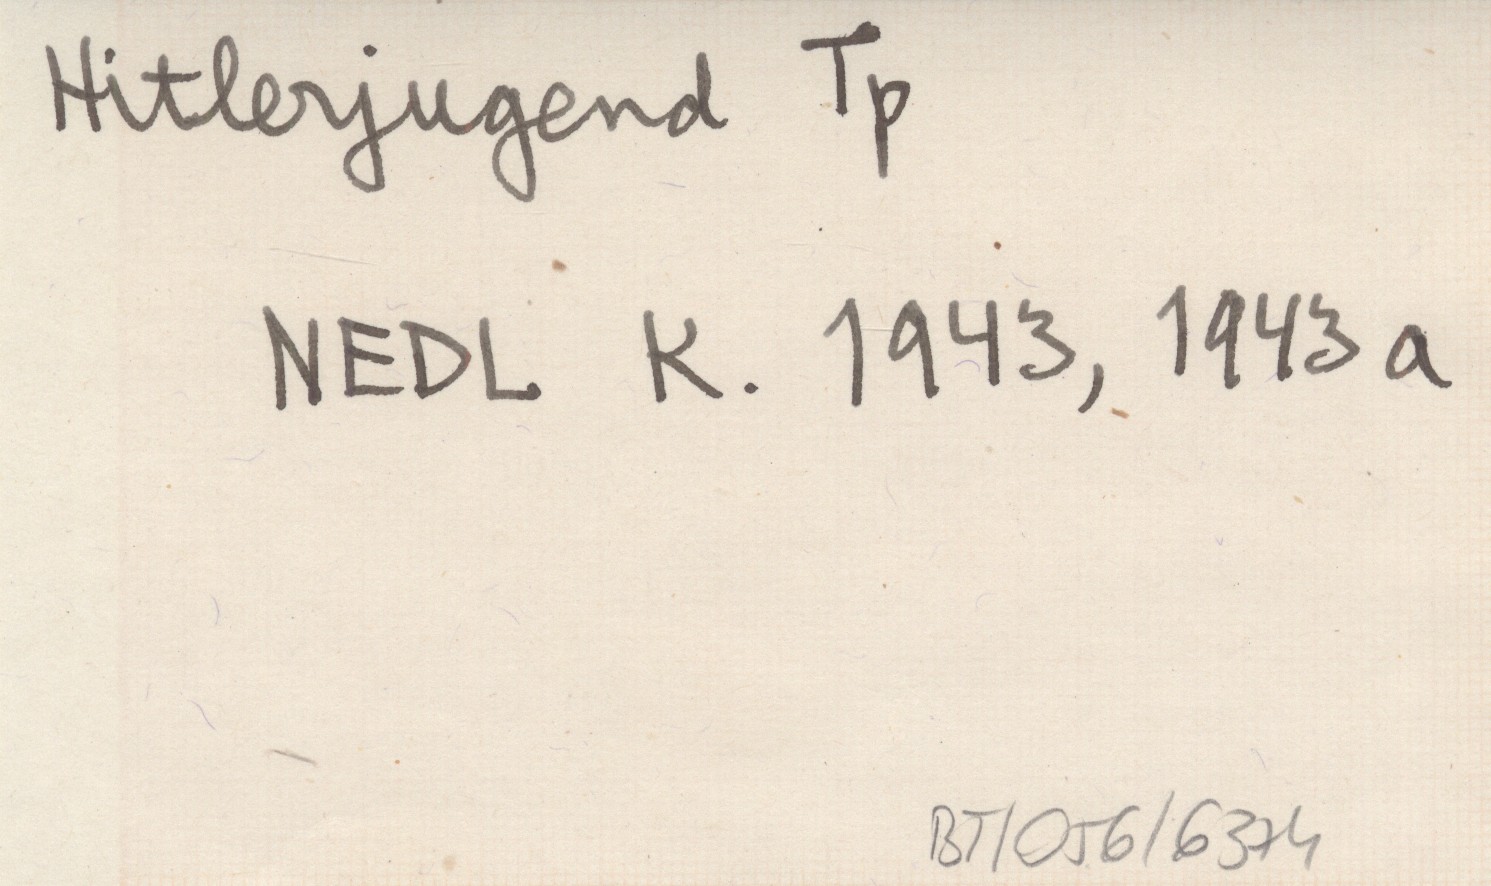 Hitlerjugend Tp
NEDL K. 1943, 1943 a
BT/056/6374